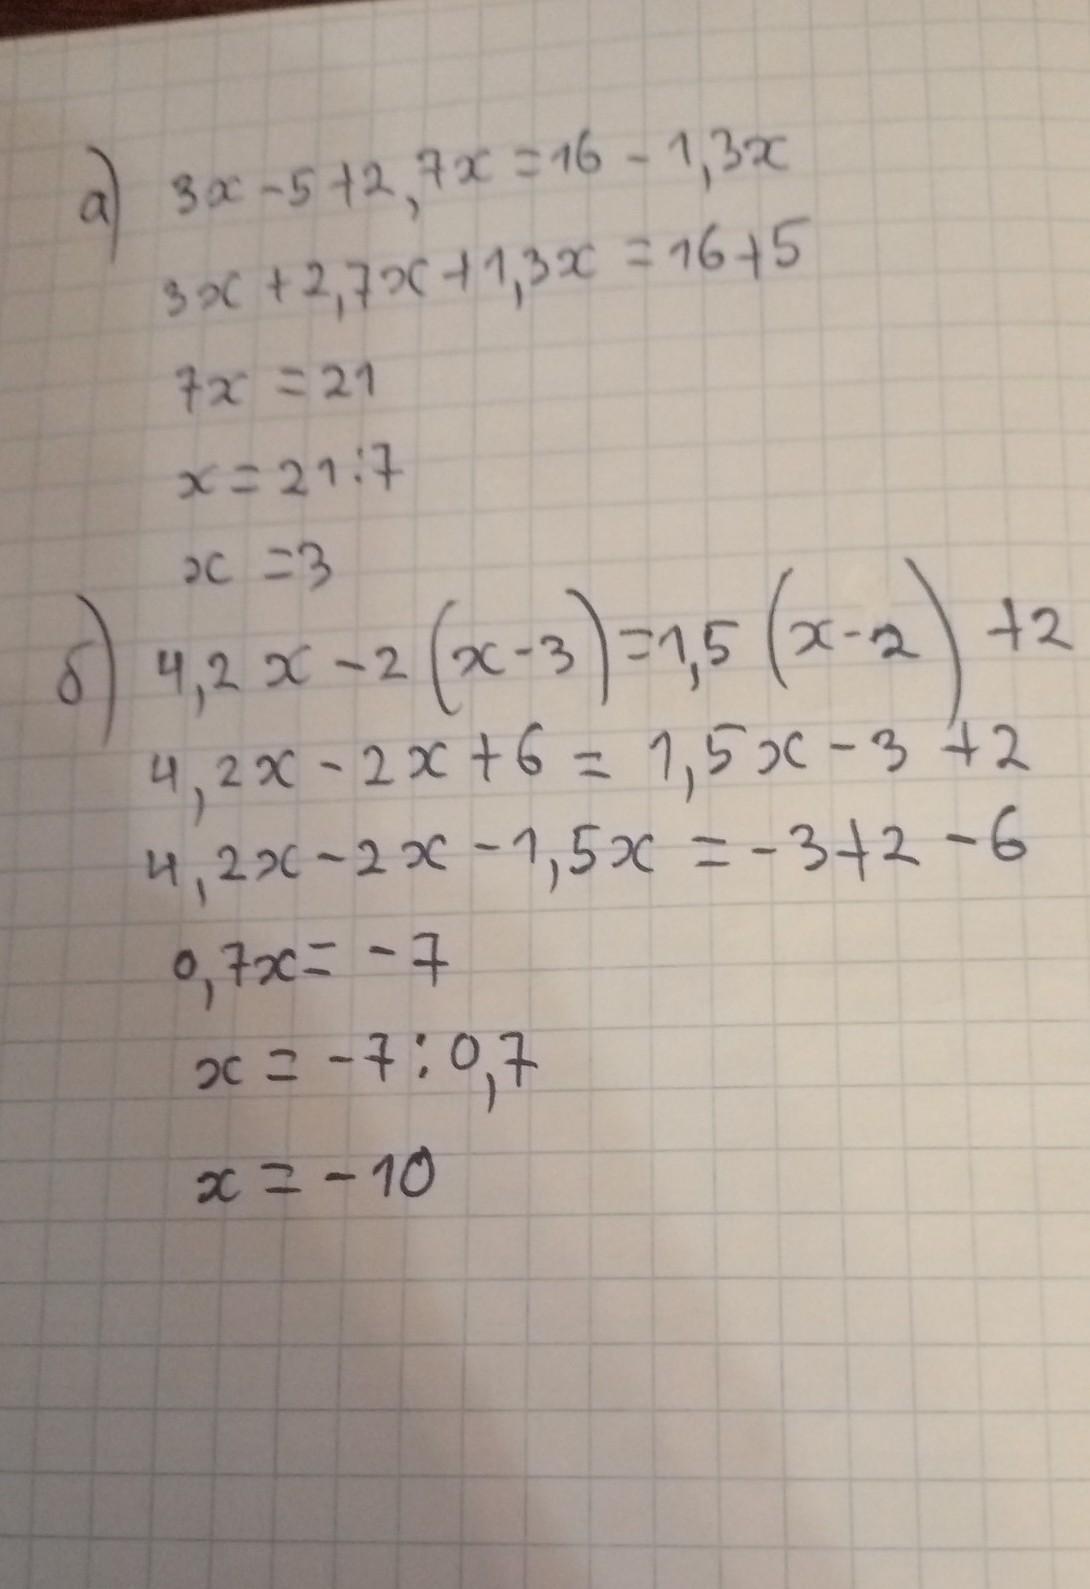 а) 3x-5+2,7x=16-1,3x
3x+2,7x+1,3x=16+5
7x=21
x=21:7
x=3
б) 4,2x-2(x-3)=1,5(x-2)+2
4,2x-2x+6=1,5x-3+2
4,2x-2x-1,5x=-3+2-6
0,7x=-7
x=-7:0,7
x=-10